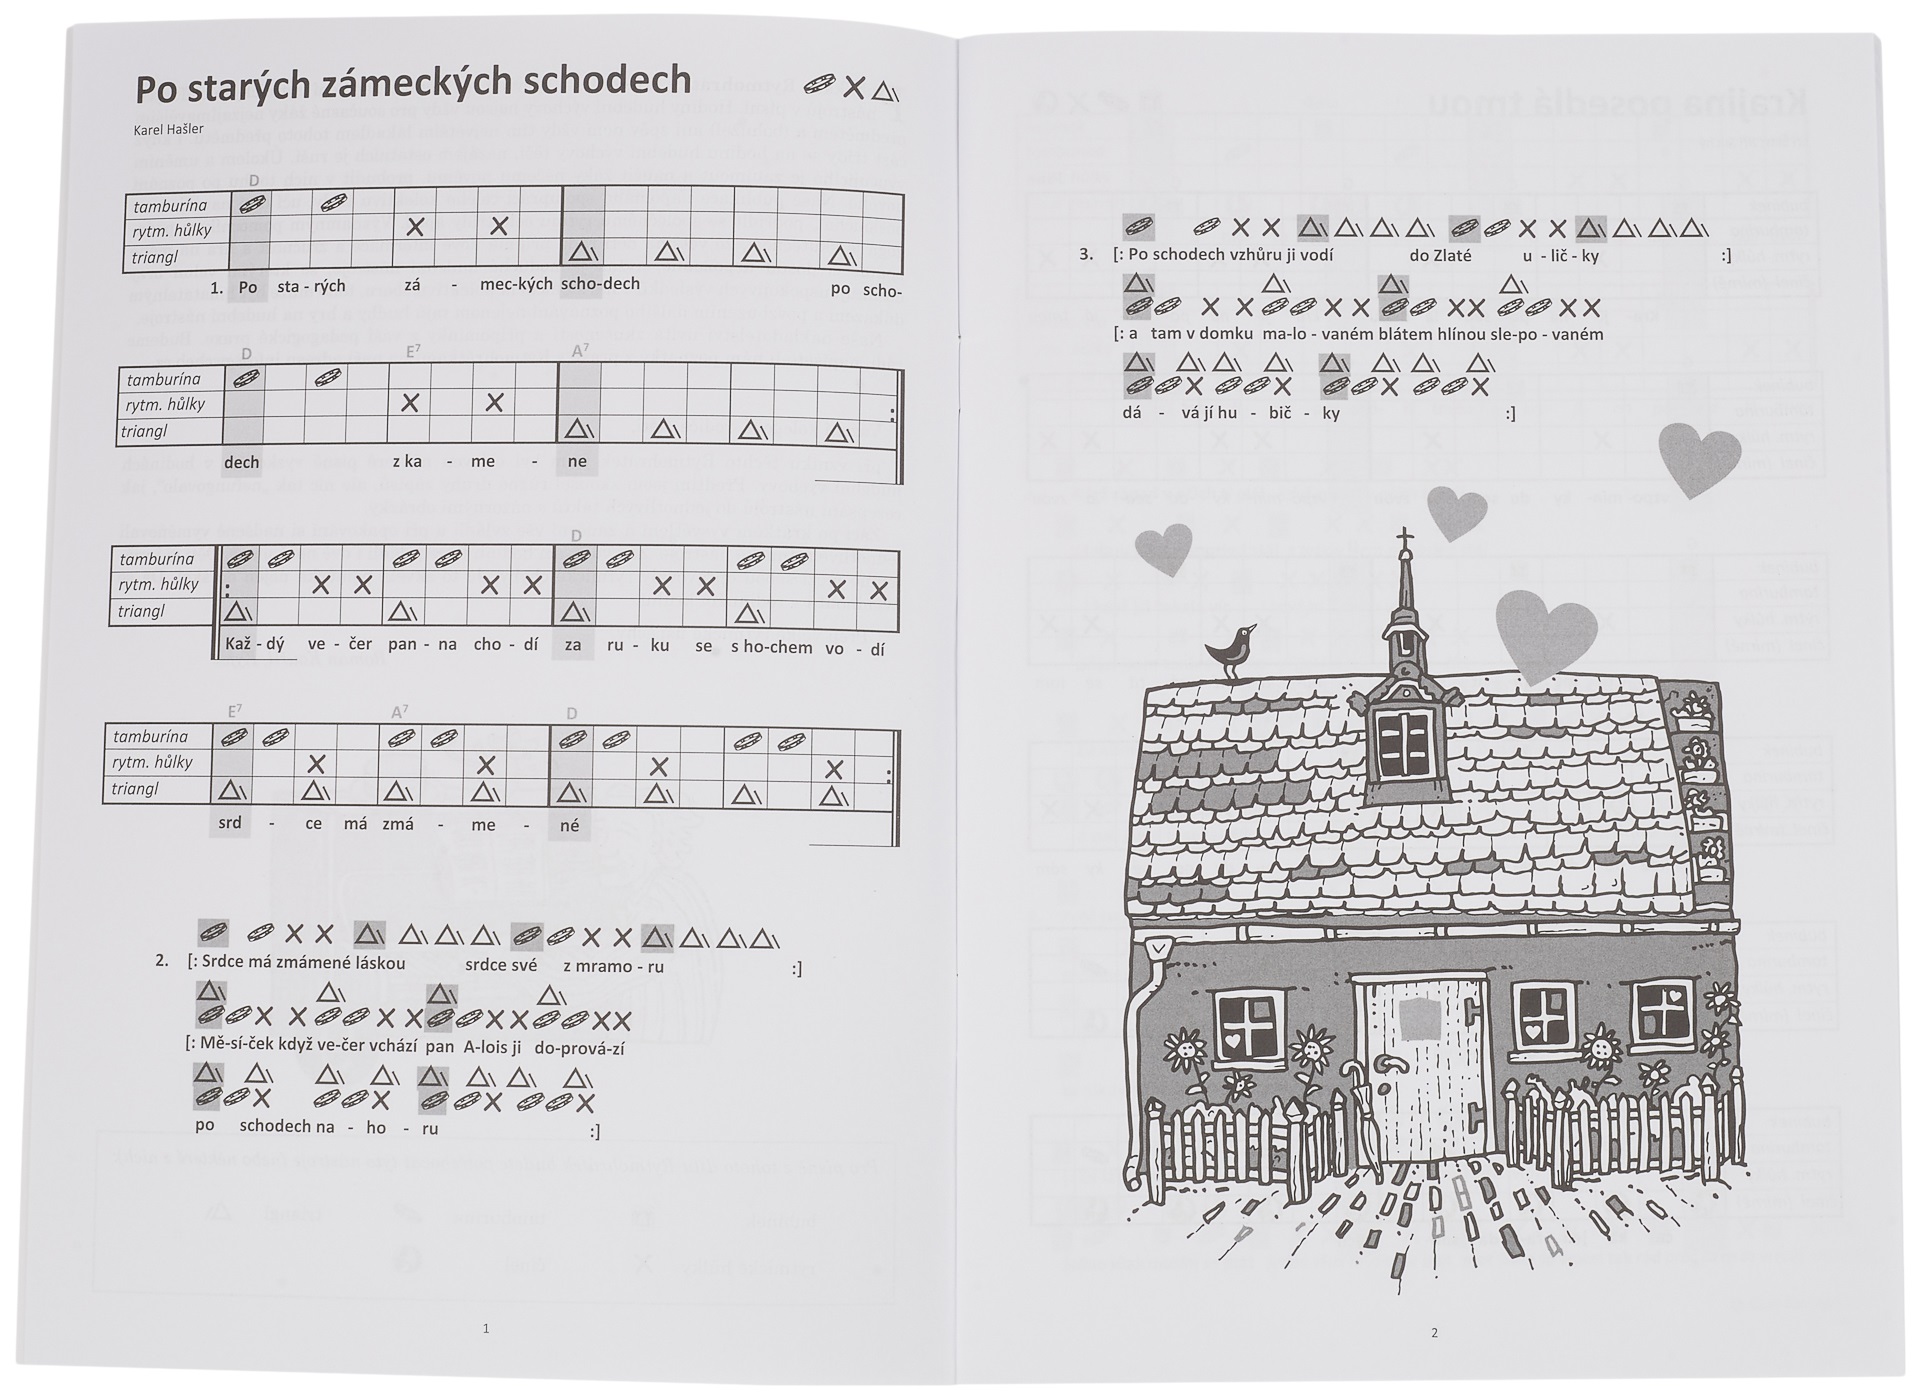 Po starých zámeckých schodech
Karel Hašler
D
tamburína
rytm. hůlky
triangl
1. Po sta - rých zá - mec-kých scho-dech po scho-
D E7 A7
tamburína
rytm. hůlky
triangl
dech z ka - me - ne
D
tamburína
rytm. hůlky
triangl
Kaž - dý ve - čer pan - na cho - dí za ru - ku se s ho-chem vo - dí
E7 A7 D
tamburína
rytm. hůlky
triangl
srd - ce má zmá - me - né
2. [: Srdce má zmámené láskou srdce své z mramo - ru :]
[: Mě-sí-ček když ve-čer vchází pan A-lois ji do-prová-zí
po schodech na - ho - ru :]
1
3. [: Po schodech vzhůru ji vodí do Zlaté u - lič - ky :]
[: a tam v domku ma-lo - vaném blátem hlínou sle-po - vaném
dá - vá jí hu - bič - ky :]
2
Krajina posedlá tmou